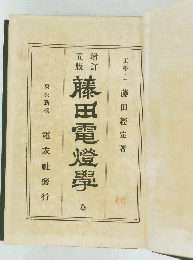 工學士 藤田經定著
增訂
五版
藤田電燈學
全
東京
電友社發行